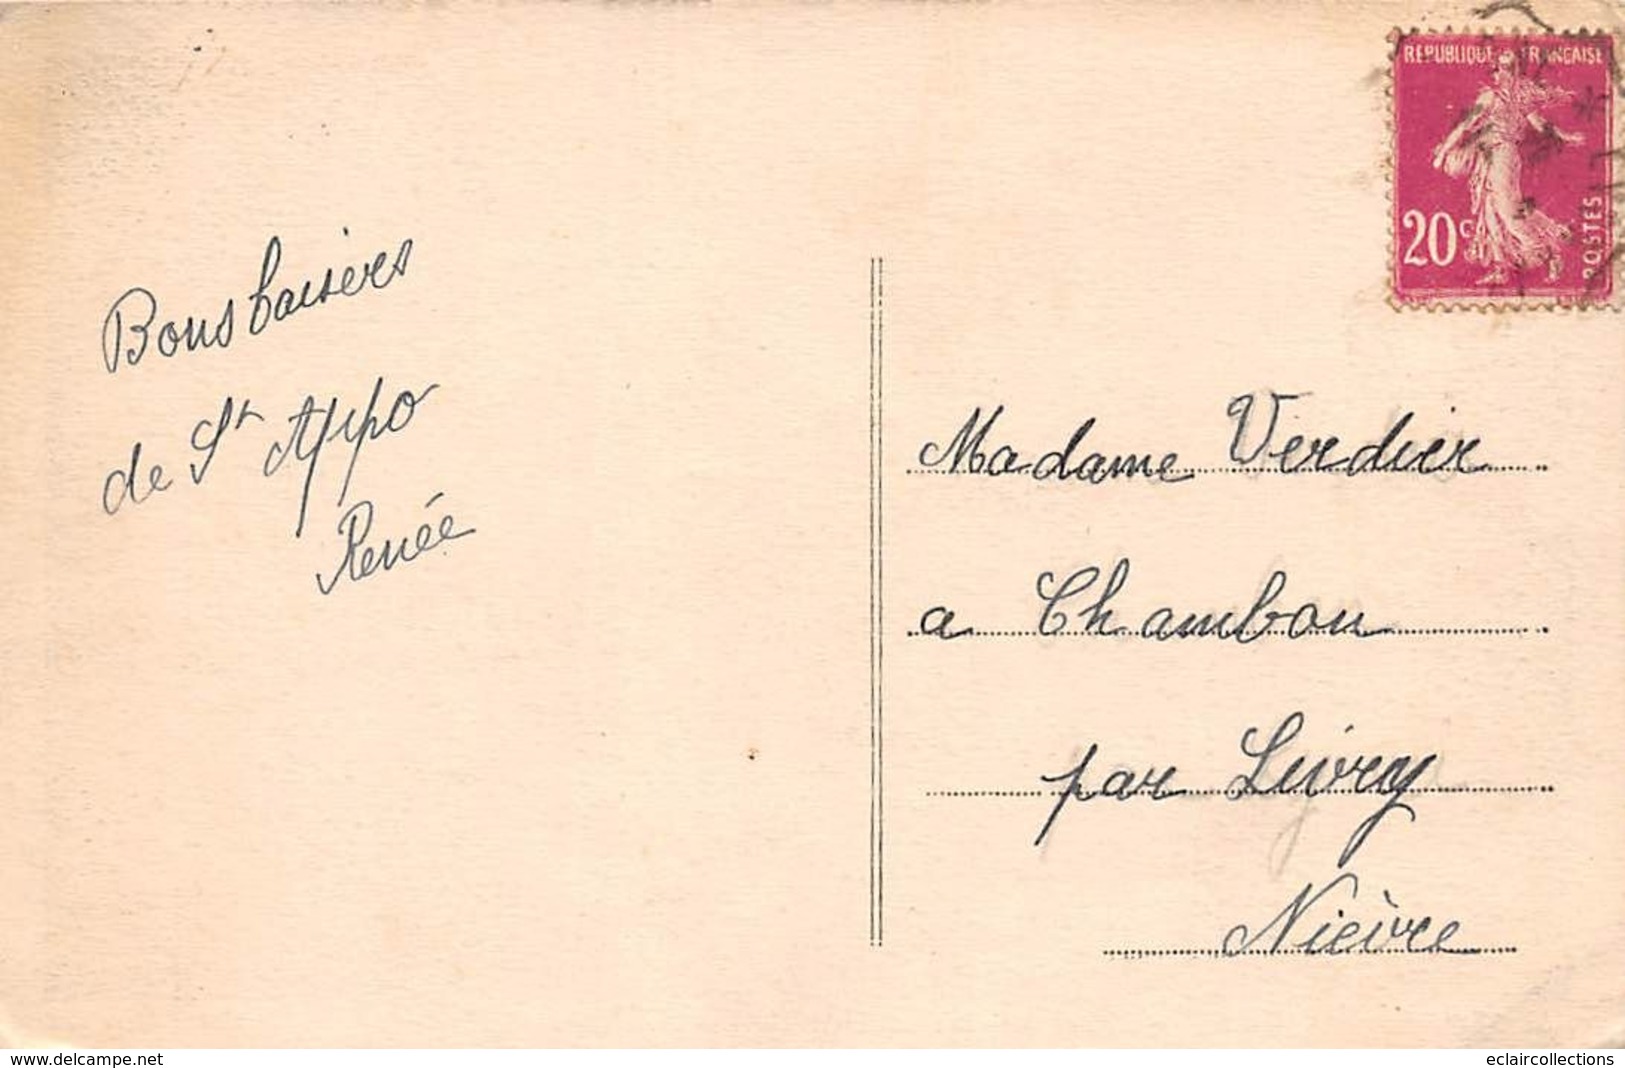 Bons baisers
de St Appo
Renée
REPUBLIQUE FRANÇAISE
20c
POSTES
Madame Verdier
a Chambon
par Livry
Nièvre
www.delcampe.net
eclaircollections